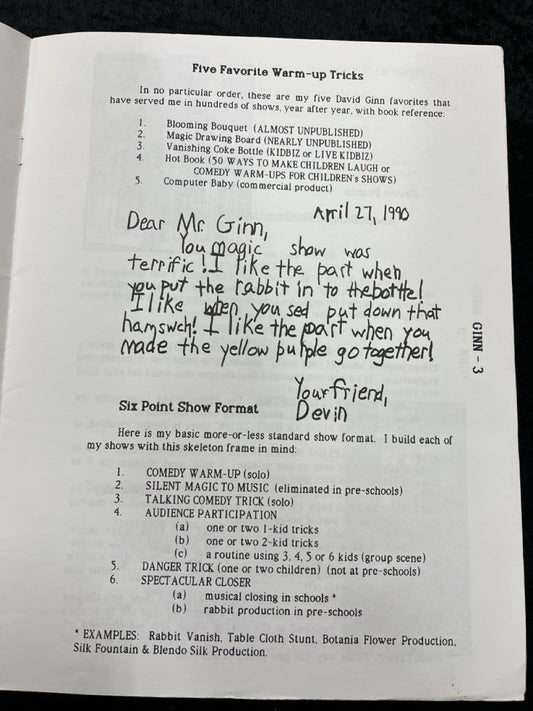 Five Favorite Warm-up Tricks
In no particular order, these are my five David Ginn favorites that
have served me in hundreds of shows, year after year, with book reference:
1. Blooming Bouquet (ALMOST UNPUBLISHED)
2. Magic Drawing Board (NEARLY UNPUBLISHED)
3. Vanishing Coke Bottle (KIDBIZ or LIVE KIDBIZ)
4. Hot Book (50 WAYS TO MAKE CHILDREN LAUGH or
COMEDY WARM-UPS FOR CHILDREN's SHOWS)
5. Computer Baby (commercial product)
April 27, 1990
Dear Mr. Ginn,
You magic show was
terrific! I like the part when
you put the rabbit in to the bottle!
I like when you sed put down that
hamswch! I like the part when you
made the yellow purple go together!
Your friend,
Devin
GINN - 3
Six Point Show Format
Here is my basic more-or-less standard show format. I build each of
my shows with this skeleton frame in mind:
1. COMEDY WARM-UP (solo)
2. SILENT MAGIC TO MUSIC (eliminated in pre-schools)
3. TALKING COMEDY TRICK (solo)
4. AUDIENCE PARTICIPATION
(a) one or two 1-kid tricks
(b) one or two 2-kid tricks
(c) a routine using 3, 4, 5 or 6 kids (group scene)
5. DANGER TRICK (one or two children) (not at pre-schools)
6. SPECTACULAR CLOSER
(a) musical closing in schools *
(b) rabbit production in pre-schools
* EXAMPLES: Rabbit Vanish, Table Cloth Stunt, Botania Flower Production,
Silk Fountain & Blendo Silk Production.